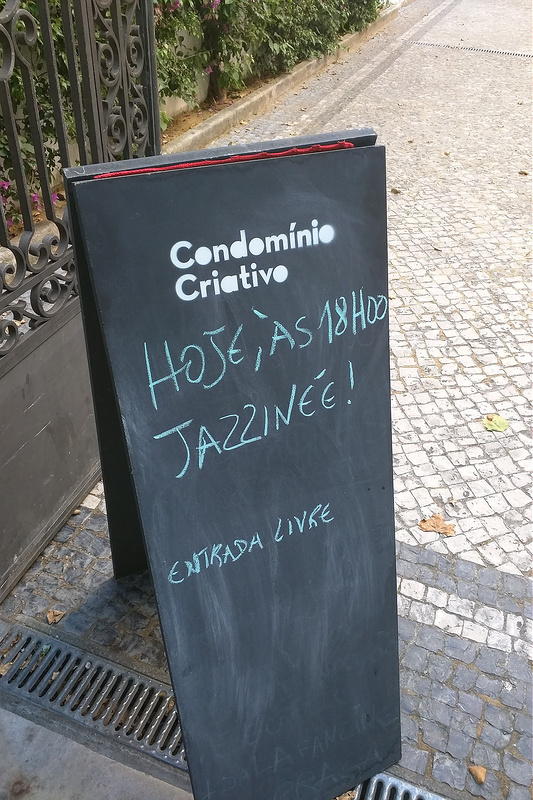 Condomínio
Criativo
HOJE, ÀS 18H00
JAZZINÉE!
ENTRADA LIVRE